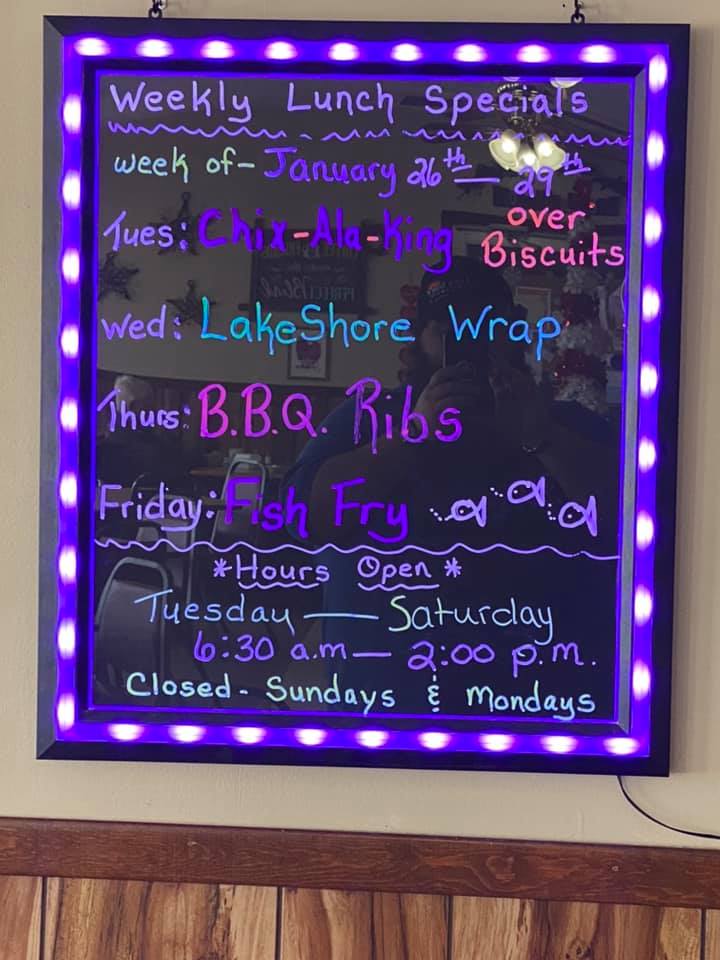 Weekly Lunch Specials
week of - January 26th — 29th
Tues: Chix-Ala-King over Biscuits
Wed: LakeShore Wrap
Thurs: B.B.Q. Ribs
Friday: Fish Fry
*Hours Open*
Tuesday — Saturday
6:30 a.m — 2:00 p.m.
Closed - Sundays & Mondays